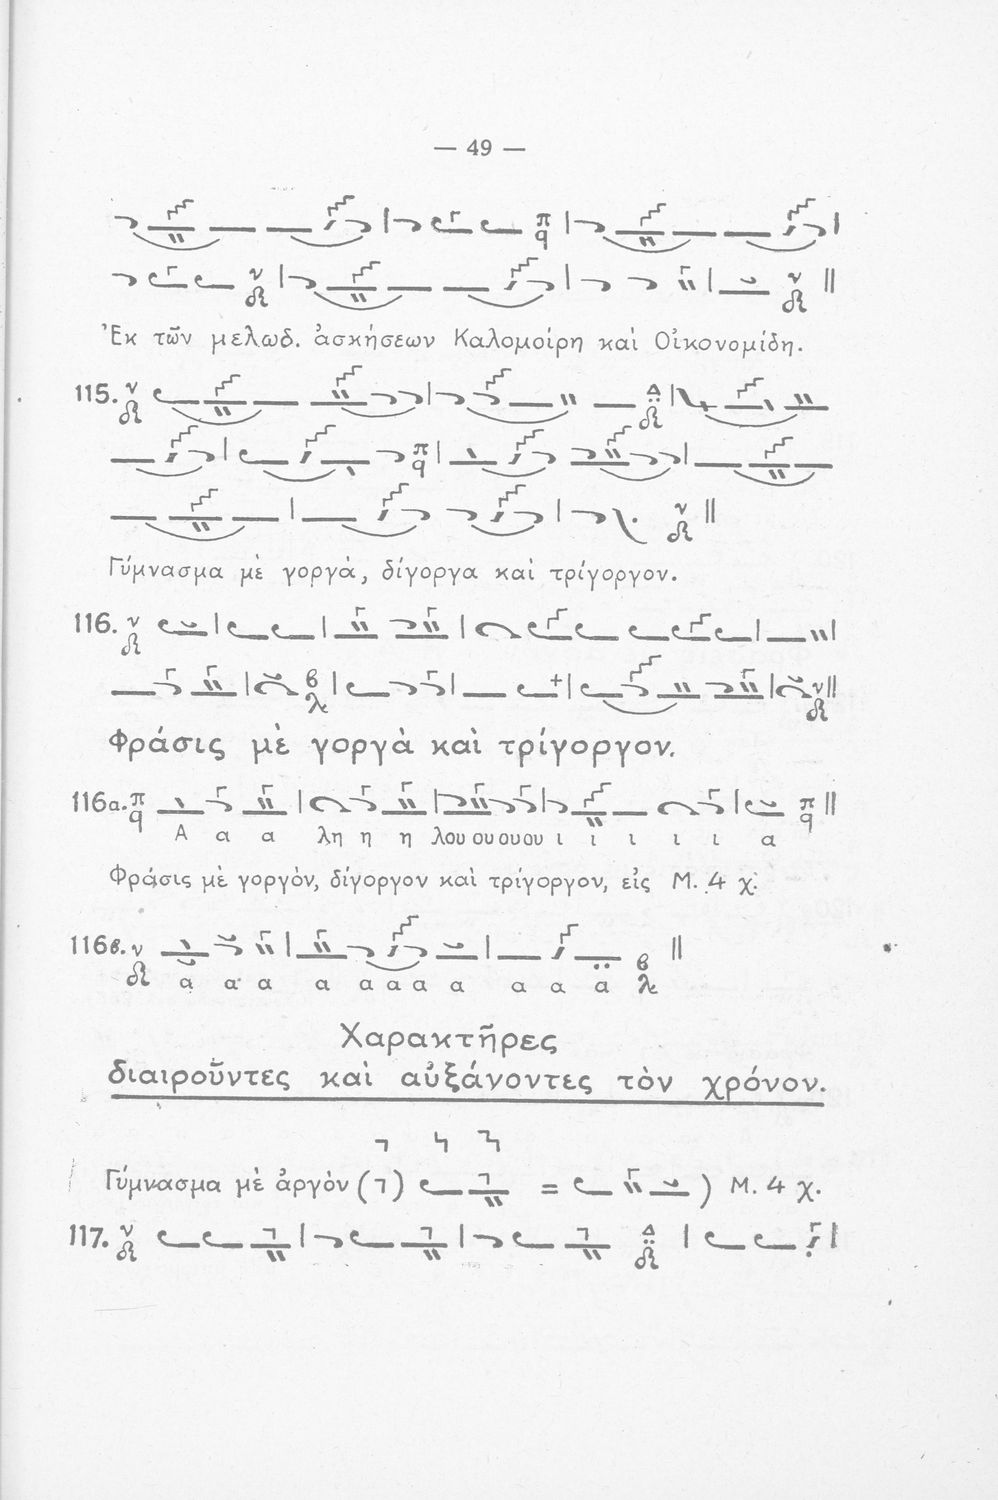 — 49 —
π
q
ν
ν
Ἐκ τῶν μελωδ. ἀσκήσεων Καλομοίρη καὶ Οἰκονομίδη.
115. ν Δ
π
q
ν
Γύμνασμα μὲ γοργὰ, δίγοργα καὶ τρίγοργον.
116. ν
β
λ ν
Φράσις μὲ γοργὰ καὶ τρίγοργον.
116α. π
q π
q
Α α α λη η η λου ου ου ου ι ι ι ι ι α
Φράσις μὲ γοργὸν, δίγοργον καὶ τρίγοργον, εἰς Μ. 4 χ.
116β. ν β
λ
α α α α α α α α α α α
Χαρακτῆρες
διαιροῦντες καὶ αὐξάνοντες τὸν χρόνον.
Γύμνασμα μὲ ἀργὸν ( ) = ) Μ. 4 χ.
117. ν Δ